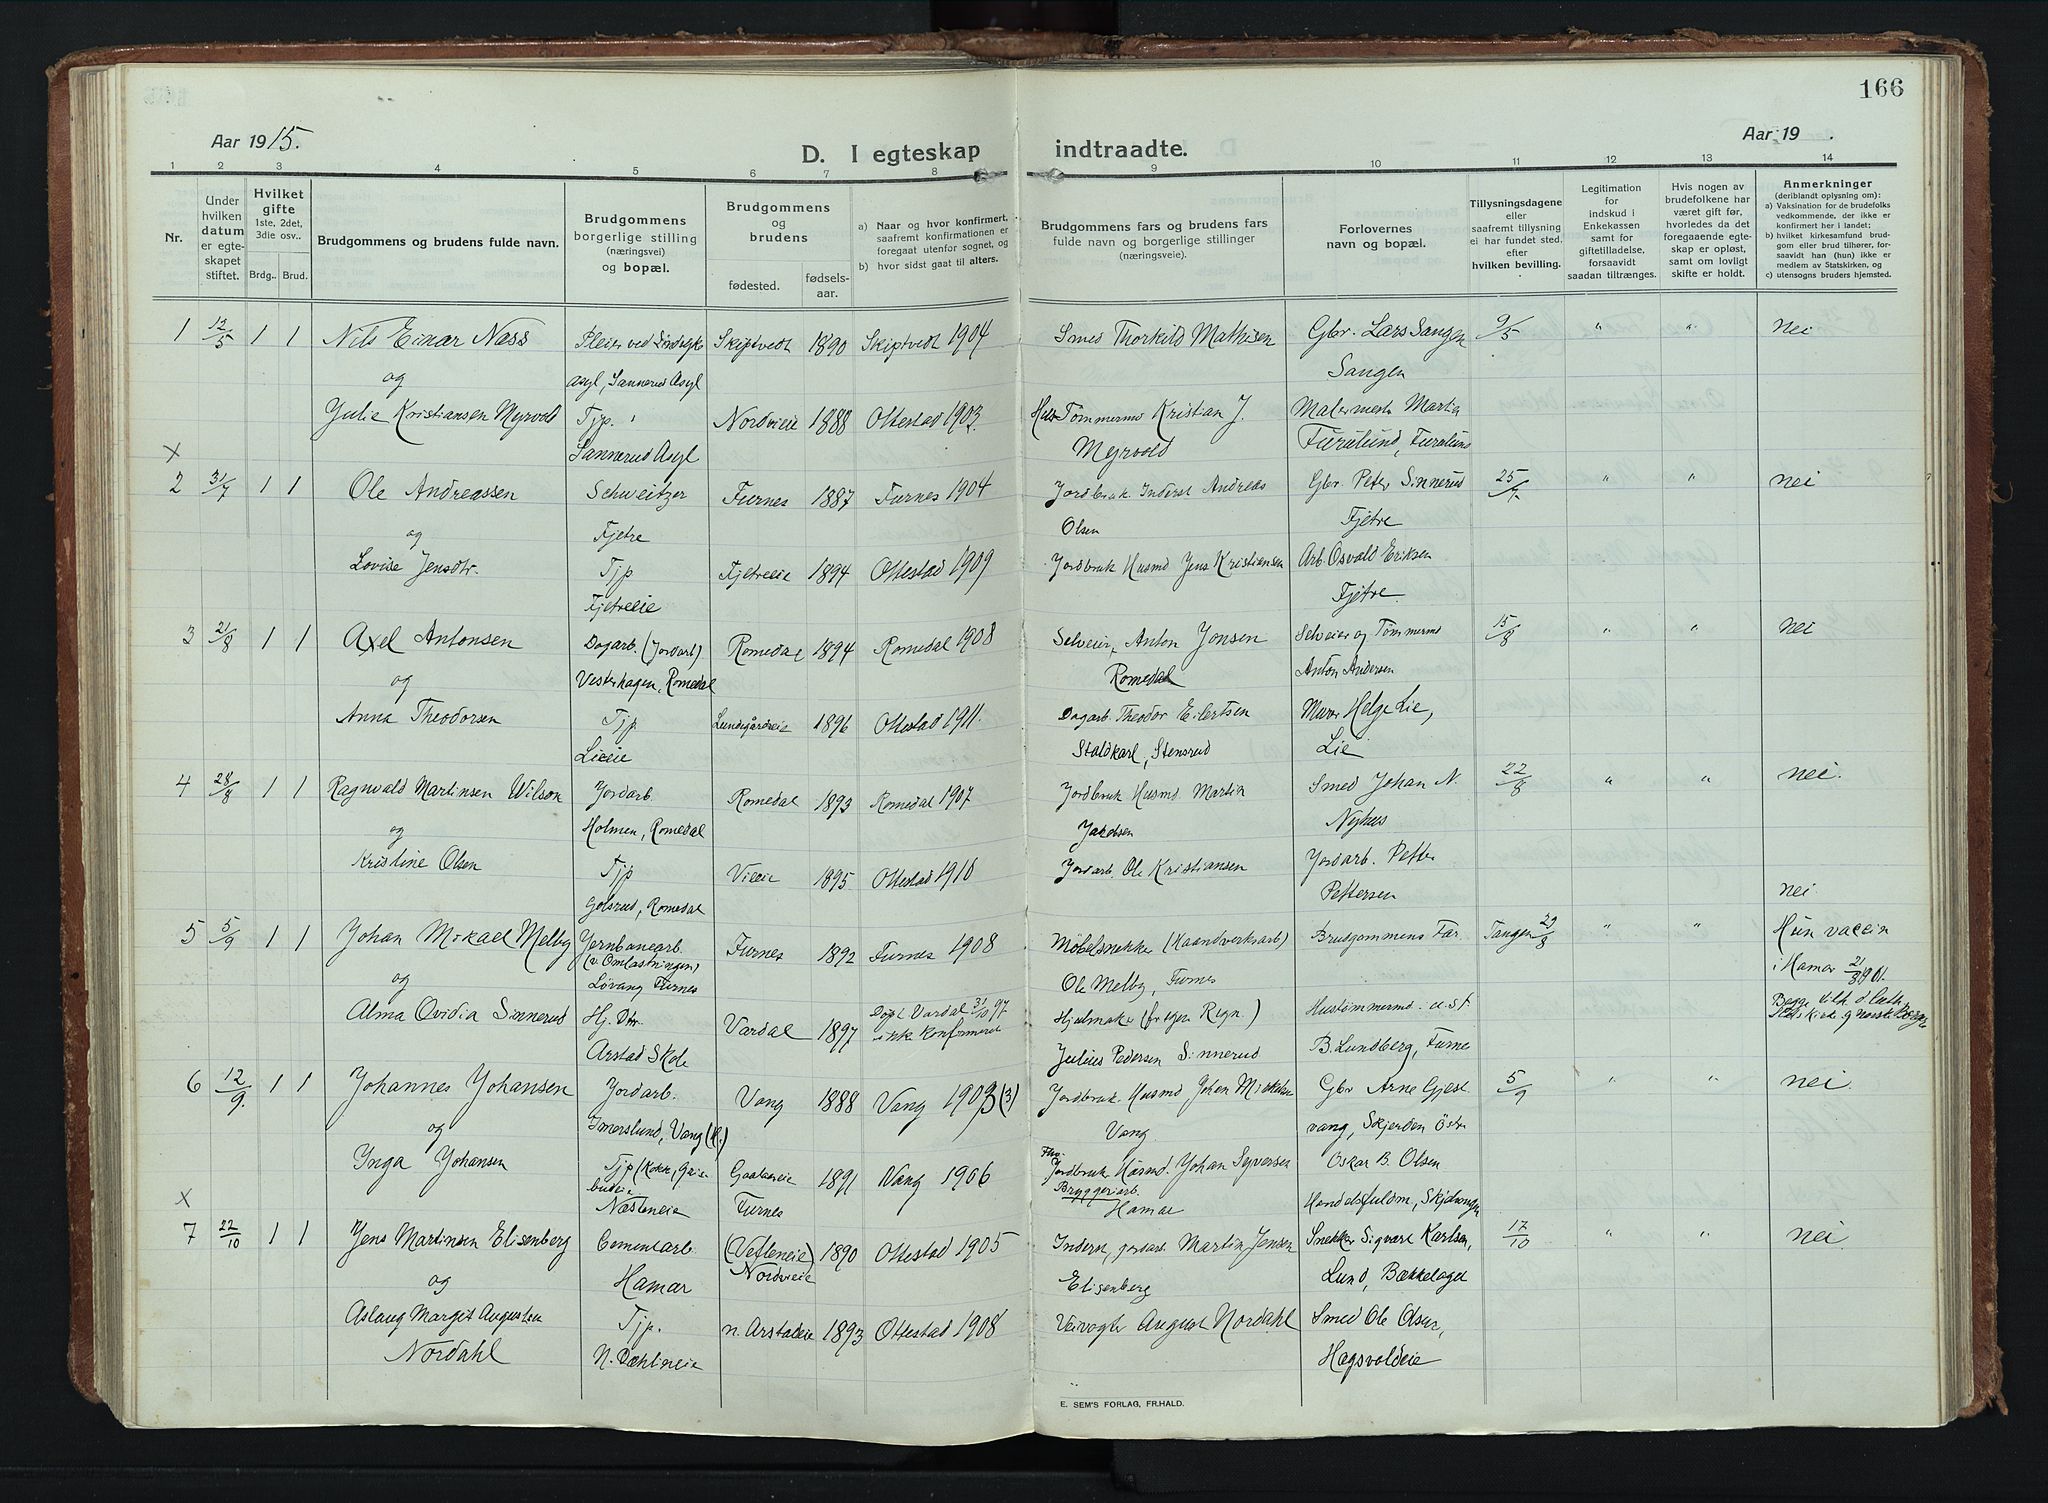 166
Aar 1915.
Aar 19 .
D. I egteskap indtraadte.
1 2 3 4 5 6 7 8 9 10 11 12 13 14
Nr.
Under hvilken datum er egte-skapet stiftet.
Hvilket gifte 1ste, 2det, 3die osv..
Brdg.. Brud.
Brudgommens og brudens fulde navn.
Brudgommens borgerlige stilling (næringsvei) og bopæl.
Brudgommens og brudens
fødested. fødsels-aar.
a) Naar og hvor konfirmert, saafremt konfirmationen er foregaat utenfor sognet, og
b) hvor sidst gaat til alters.
Brudgommens fars og brudens fars fulde navn og borgerlige stillinger (næringsveie).
Forlovernes navn og bopæl.
Tillysningsdagene eller saafremt tillysning ei har fundet sted. efter hvilken bevilling.
Legitimation for indskud i Enkekassen samt for giftetilladelse, forsaavidt saadan tiltrænges.
Hvis nogen av brudefolkene har været gift før, hvorledes da det foregaaende egte-skap er opløst, samt om lovligt skifte er holdt.
Anmerkninger
(deriblandt oplysning om):
a) Vaksination for de brudefolks vedkommende, der ikke er konfirmert her i landet;
b) hvilket kirkesamfund brud-gom eller brud tilhører, for-saavidt han (hun) ikke er medlem av Statskirken, og
c) utensogns bruders hjemsted.
1 12/5 1 1 Nils Einar Næss Pleier ved Sindssyke Skiptvedt 1890 Skiptvedt 1904 Smed Thorkild Mathisen Gbr. Lars Sangen 9/5 " " nei
og asyl, Sannerud Asyl Sangen
Julie Kristiansen Myrvold Tjp. Nordvieie 1888 Ottestad 1903. Tømmermd Kristian J. Malermester Martin
Sannerud Asyl Myrvold Furulund, Furulund
x
2 31/7 1 1 Ole Andreassen Schweitzer Furnes 1887 Furnes 1904 Jordbruk. Inderst Andreas Gbr. Peter Sinnerud 25/7 " " nei
og Fjetre Olsen Fjetre
Lovise Jensdtr. Tjp Fjetreeie 1894 Ottestad 1909 Jordbruk Husmd Jens Kristiansen Arb Osvald Eriksen
Fjetreeie Fjetre
3 21/8 1 1 Axel Antonsen Dagarb. (Jordarb) Romedal 1894 Romedal 1908 Selveier, Anton Jonsen Selveier og Tømmermd 15/8 " " nei
og Vesterhagen, Romedal Romedal Anton Andersen
Anna Theodorsen Tjp. Lundgårdeie 1896 Ottestad 1911. Dagarb. Theodor Eilertsen Murer Helge Lie,
Lieeie Staldkarl, Stensrud Lie
4 28/8 1 1 Ragnvald Martinsen Wilson Jordarb. Romedal 1893 Romedal 1907 Jordbruk Husmd Martin Smed Johan N. 22/8 " " nei.
og Holmen, Romedal Jakobsen Nyhus
Kristine Olsen Tjp Vieeie 1895 Ottestad 1910 Jordarb. Ole Kristiansen Jordarb. Petter
Golsrud, Romedal Pettersen nei
5 5/9 1 1 Johan Mikael Melby Jernbanearb. Furnes 1892 Furnes 1908 Møbelsnekker (Haandverksarb) Brudgommens Far Tangen 29/8 " " Hun vaccin
og (v. Omlastningen) Løvang Furnes Ole Melby, Furnes i Hamar 21/8 1901.
Alma Ovidia Sinnerud Hj. Dtr. Vardal 1897 Døpt Vardal 31/10 97 Hjulmaker (fr egen Regn.) Hustømmermd
Arstad Skole ikke konfirmeret Julius Pedersen Sinnerud B. Lundberg, Furnes
6 12/9. 1 1 Johannes Johansen Jordarb. Vang 1888 Vang 1903 (3) Jordbruk. Husmd Johan Mikkelsen Gbr Arne Gjest 5/9 " " nei.
og Imerslund, Vang (H.) Vang vang, Skjerden Östre
Inga Johansen Tjp (Kokk, Gris- Gaalaaseie 1891 Vang 1906 Jordbruk Husmd. Johan Syversen Oskar B. Olsen
budeie Bryggeriarb.
Næsteneie Furnes Hamar Handelsfuldm,
x
7 22/10 1 1 Jens Martinsen Elisenberg Cementarb. (Vetleneie) 1890 Ottestad 1905 Inderst, jordarb. Martin Jensen Snekker Sigvart Karlsen, 17/10 " " nei
og Hamar Nordvieie Elisenberg Lund, Bækkelaget
Aslaug Margit Augustsen Tjp. n. Arstadeie 1893 Ottestad 1908 Veivogter August Nordahl Smed Ole Olsen,
Nordahl N. Dæhlineie Hagsvoldeie
E. SEM'S FORLAG, FR.HALD.